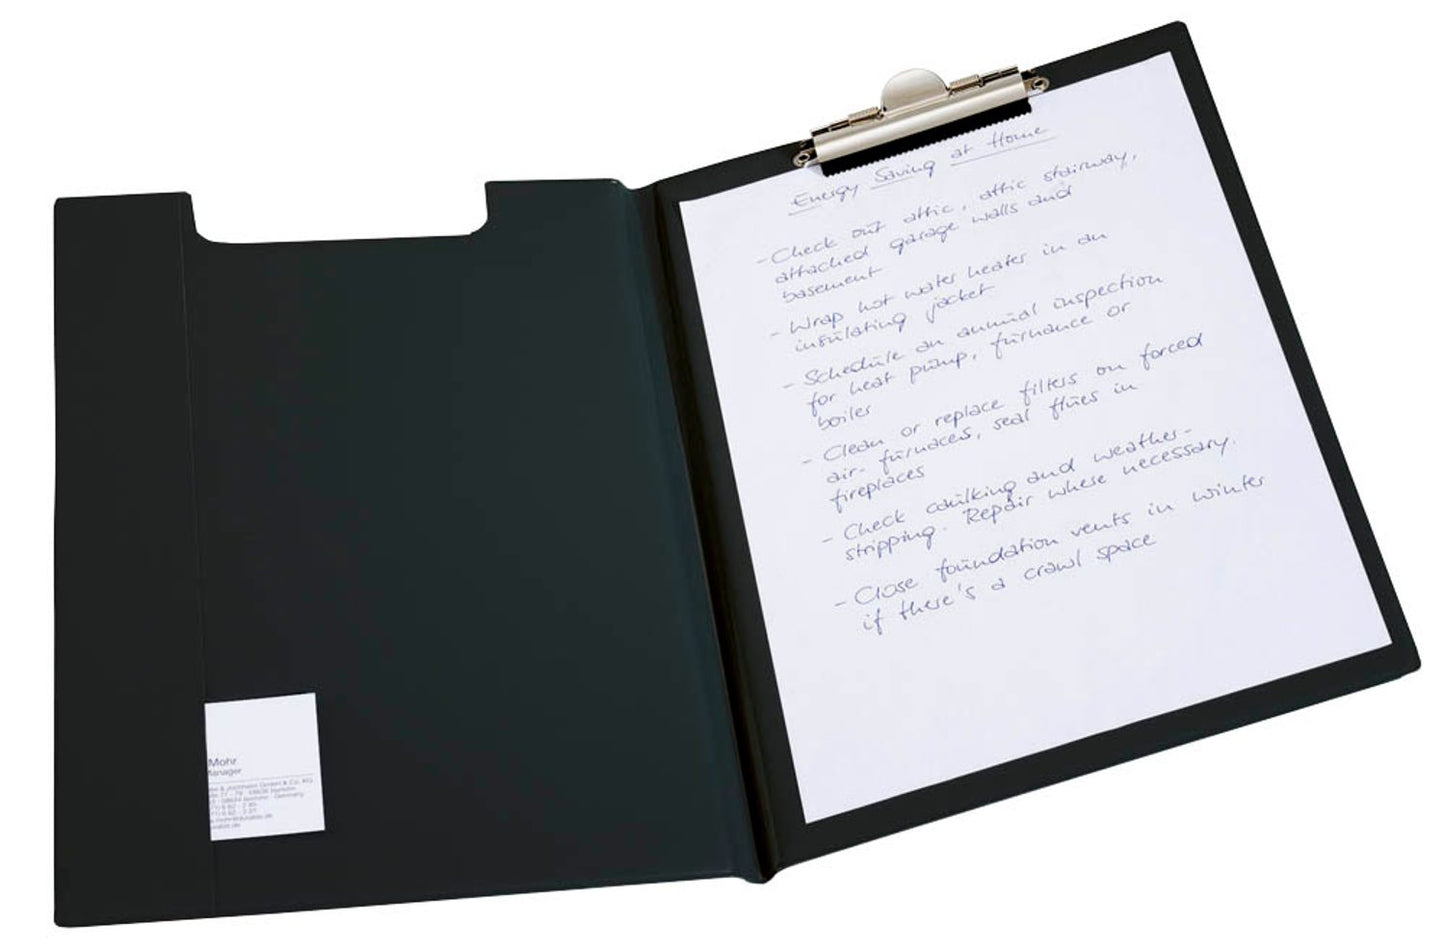 Energy Saving at Home
- Check out attic, attic stairway,
attached garage walls and
basement
- Wrap hot water heater in an
insulating jacket
- Schedule an annual inspection
for heat pump, furnance or
boiler
- Clean or replace filters on forced
air-furnaces, seal flues in
fireplaces
- Check caulking and weather-
stripping. Repair where necessary.
- Close foundation vents in winter
if there's a crawl space
Mohr
Manager
GmbH & Co. KG
Iserlohn
Iserlohn Germany